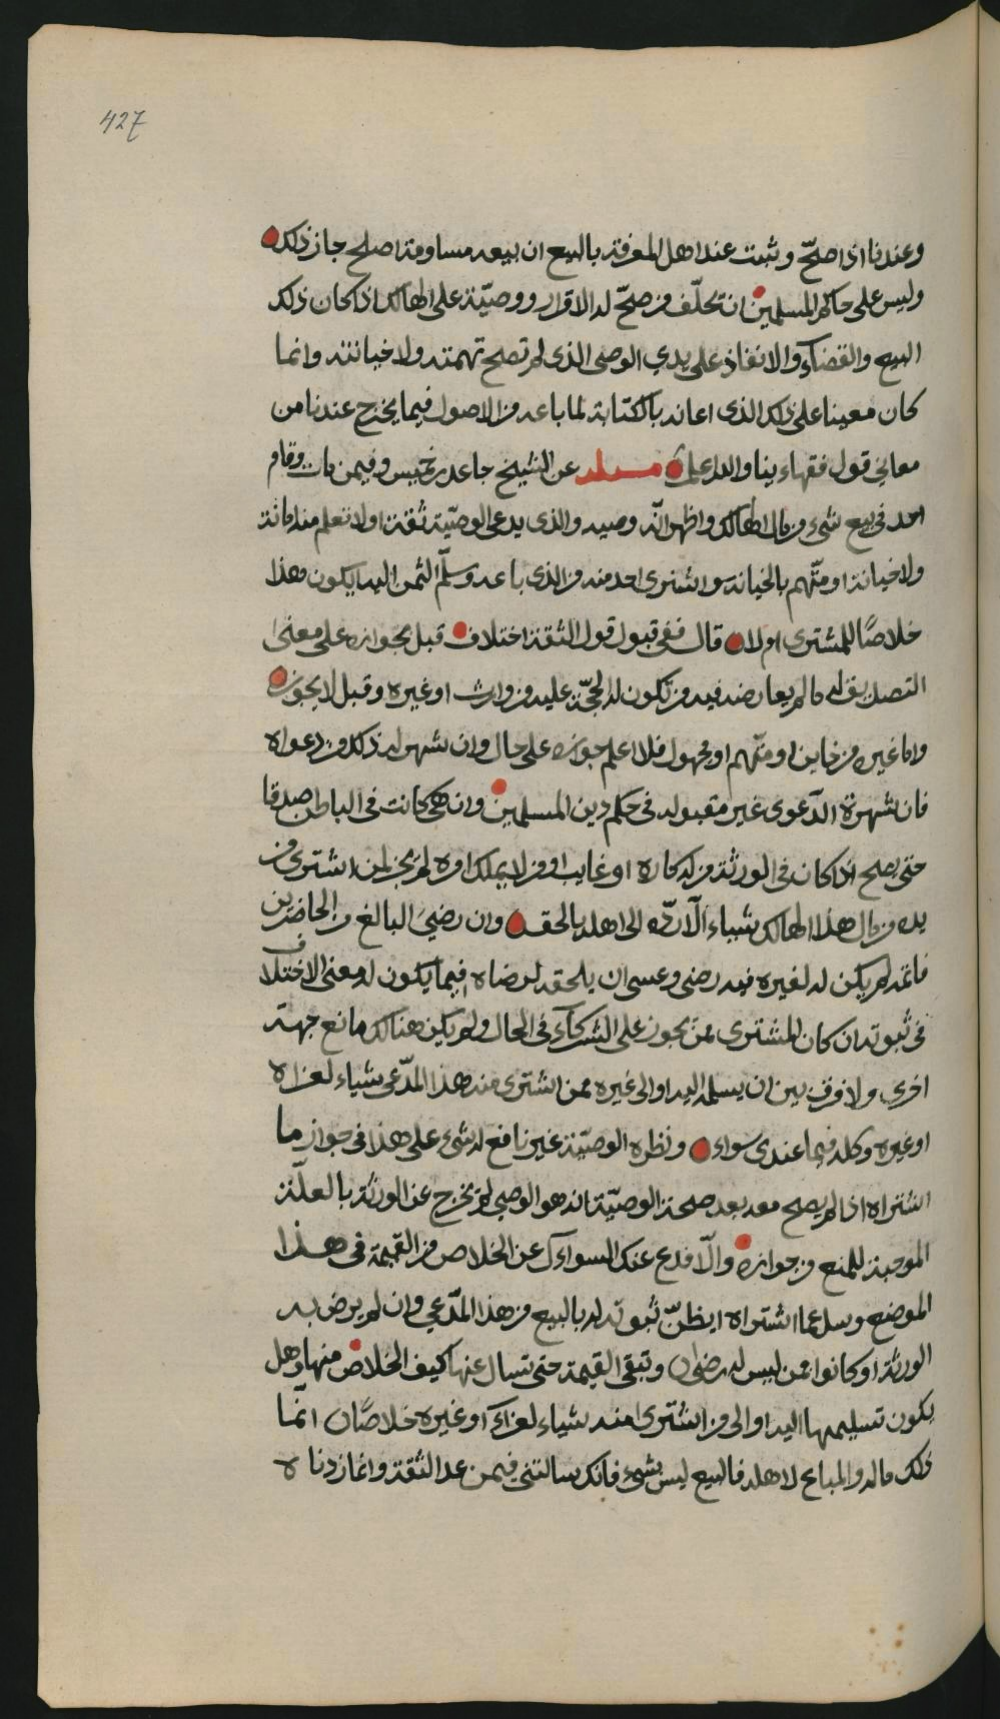 427
وعندنا اذا صلحّ وثبت عند اهل المعرفة بالبيع ان بيعه مساومة اصلح جاز ذلك
وليس على حاكم المسلمين ان تحلّف من صحّ له الاقرار ووصيّة على الهالك اذا كان ذلك
البيع والقضاء والانفاذ على يدي الوصى الذى لم تصح تهمته ولا خيانته وانما
كان معينا على ذلك الذى اعانه بالكتابة لما باعه من الاصول فيما يخرج عندنا من
معاني قول فقهاءينا والله اعلم مسئلة عن الشيخ جاعد بن خميس وفيمن مات وقام
احد في بيع شيء من مال الهالك واظهر انّه وصيه والذى يدعى الوصيّة ثقة اولا تعلم منه امانة
ولا خيانة او متّهم بالخيانة واشترى احد منه من الذى باعه وسلّم الثمن اليه ايكون هذا
خلاصًا للمشترى ام لا قال ففى قبول قول الثقة اختلاف قيل بجوازه على معنى
التصديق له ما لم يعارضه فيه من تكون له الحجّة عليه من وارث او غيره وقيل لا يجوز
واما غيره من خاين او متّهم او مجهول فلا اعلم جوازه على حال وان شهر له ذلك من دعواه
فان شهرة الدّعوى غير مقبولة فى حكم دين المسلمين وان هى كانت فى الباطن صدقا
حتى يصح اذا كان فى الورثة من له كاره او غايب او من لا يملك امره لم يجز لمن اشترى من
يده من مال هذا الهالك شياء الّا ردّه الى اهله بالحق وان رضىَ البالغ من الحاضرين
فانّه لم يكن له لغيره فيه رضى وعسى ان يلحقه لرضاه فيما يكون له معنى الاختلاف
فى ثبوته ان كان المشترى ممّن يجوز على الشركآء فى الحال ولم يكن هنالك مانع جهة
اخرى ولا فرق بين ان يسلمه اليه او الى غيره ممن اشترى منه هذا المدّعى شياء لعزاه
او غيره وكله فيما عندى سواء ونظره الوصيّة غير نافع له شيء على هذا فى جواز ما
اشتراه اذا لم يصح معه بعد صحة الوصيّة انه هو الوصي لم تخرج عن الورثة بالعلّة
الموجبة للمنع من جوازه والّا فدع عنك السواءل عن الخلاص من القيمة فى هذا
الموضع وسل عما اشتراه ايظنّ ثبوته له بالبيع من هذا المدّعي وان لم يرض به
الورثة او كانوا ممن ليس له رضىً وتبقى القيمة حتى تسال عنها كيف الخلاص منها وهل
يكون تسليمها اليه او الى من اشترى منه شياء لعزاء او غيره خلاصًا انّما
ذلك ماله والمباع لاهله فالبيع ليس بشيء فانك سالتني فيمن عد الثقة وانما زدناه